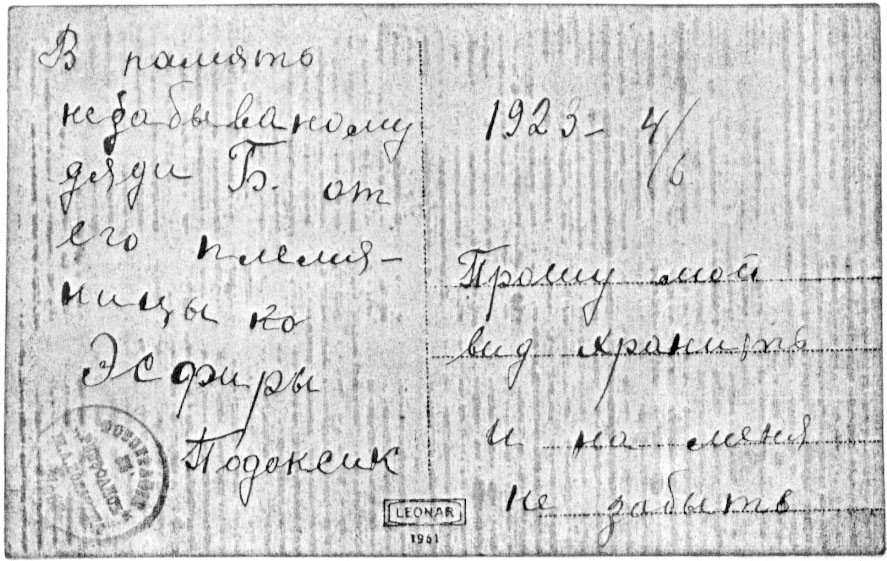 В память
незабываному
дяди Б. от
его племя-
ницы ко
Эсфиры
Подоксик
1923 - 4/6
Прошу мой
вид хранить
и на меня
не забыть
LEONAR
1961